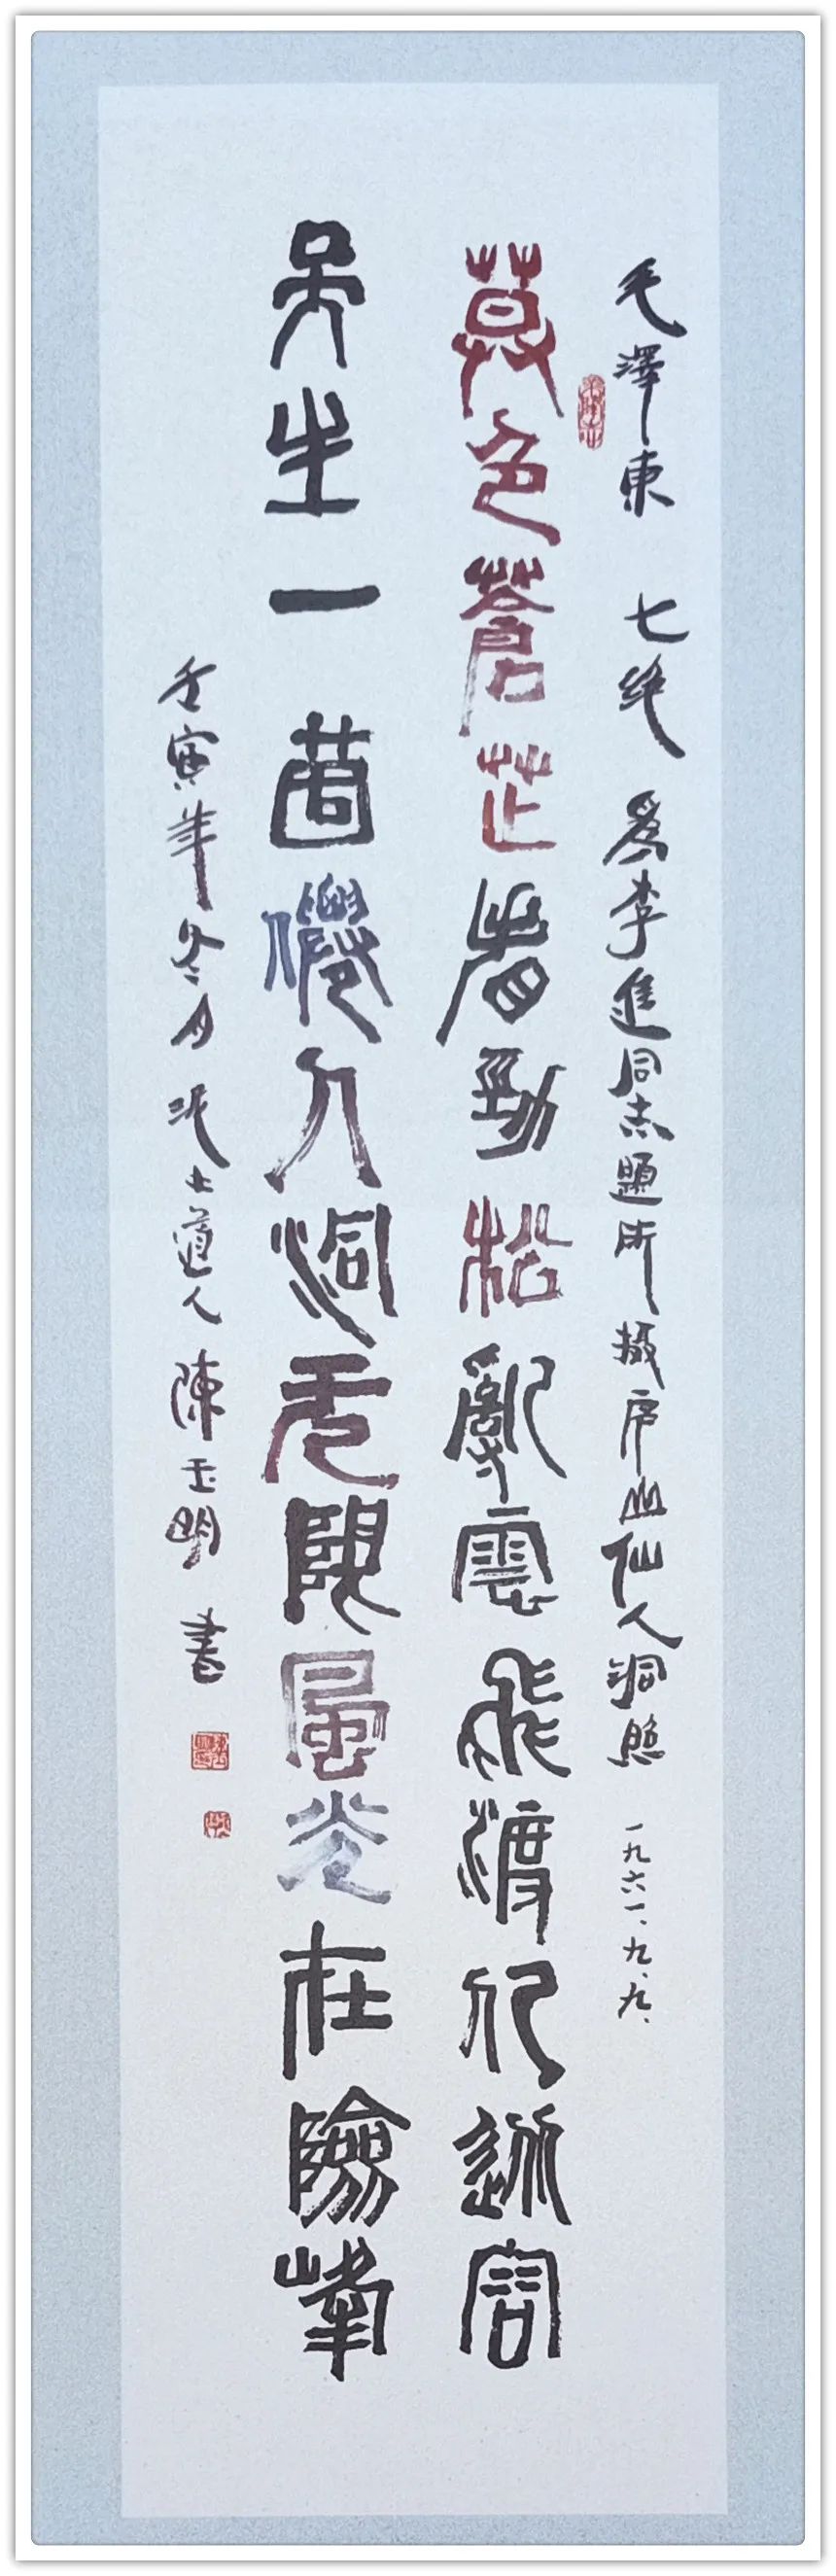 毛澤東 七绝 爲李進同志題所攝庐山仙人洞照 一九六一、九、九、
莫色蒼茫看勁松亂雲飛渡仍從容
天生一個僊人洞无限風光在險峰
壬寅年冬月泥土道人陳玉明 書